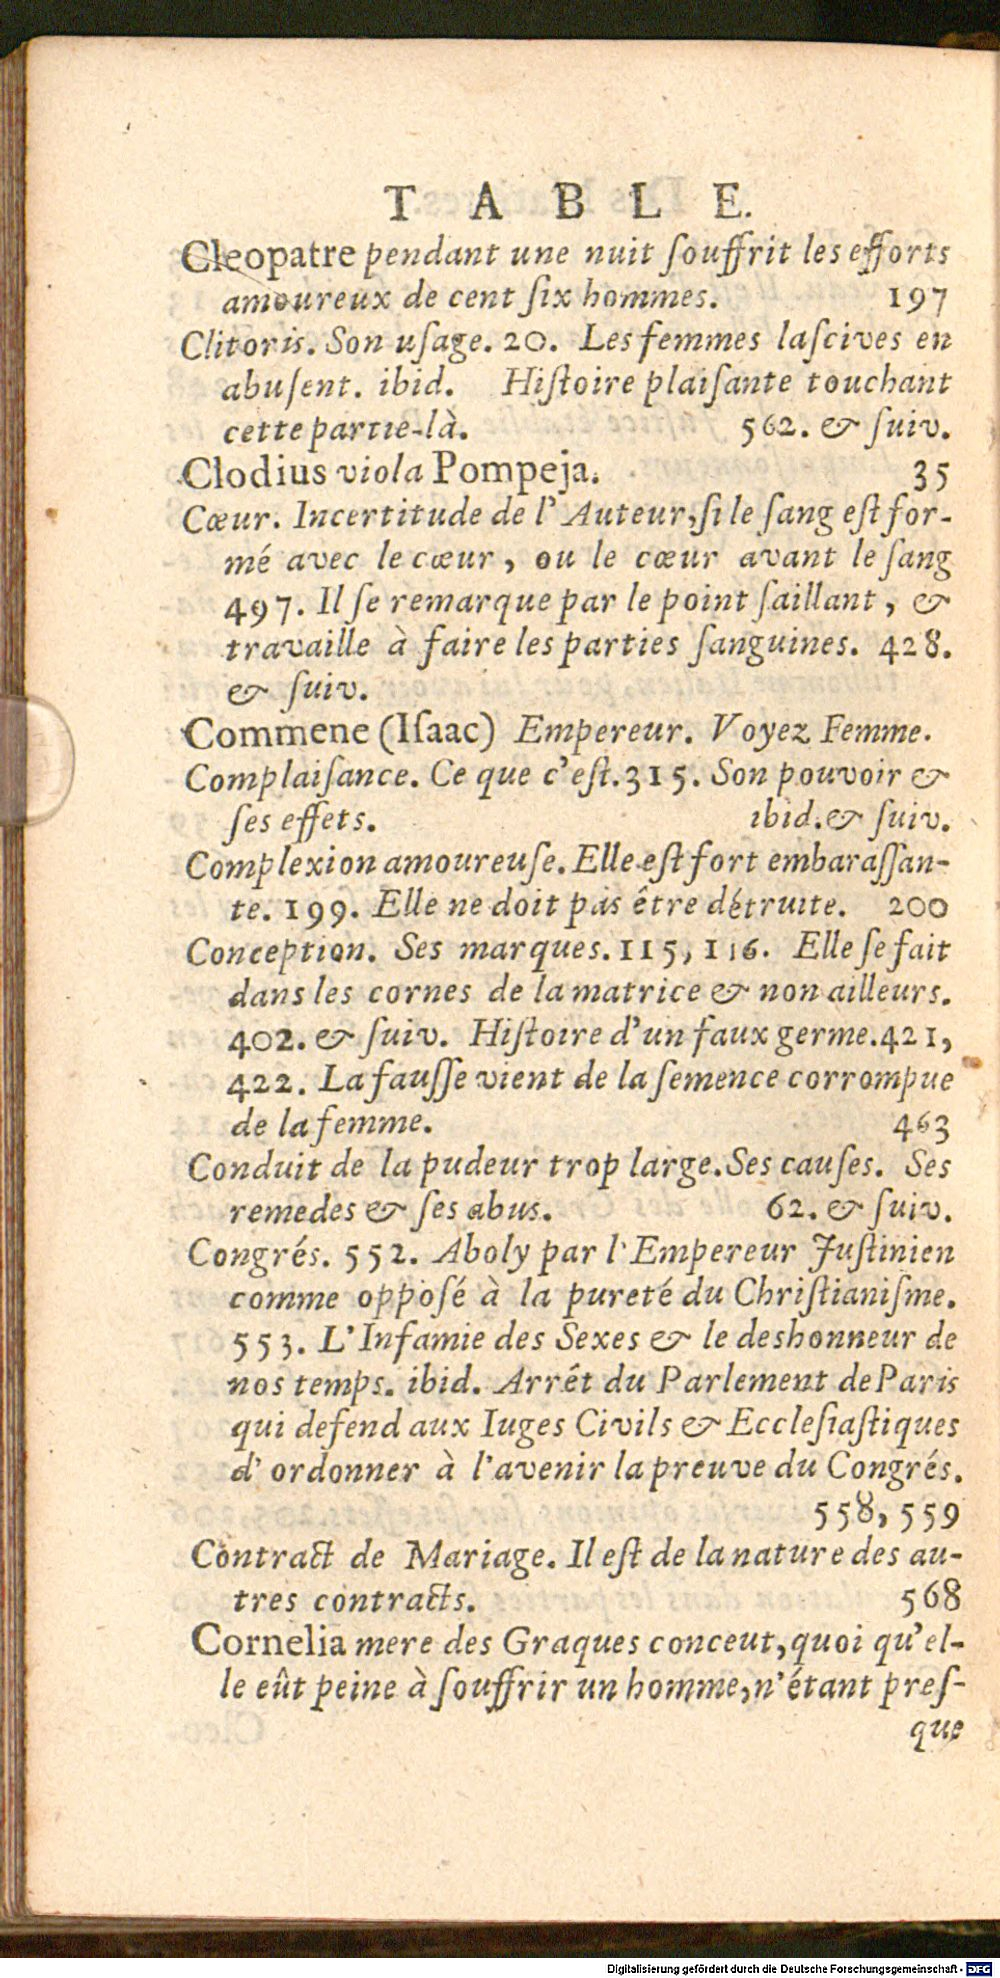 TABLE.
Cleopatre pendant une nuit ſouffrit les efforts
amoureux de cent ſix hommes. 197
Clitoris. Son uſage. 20. Les femmes laſcives en
abuſent. ibid. Hiſtoire plaiſante touchant
cette partie-là. 562. & ſuiv.
Clodius viola Pompeja. 35
Cœur. Incertitude de l'Auteur, ſi le ſang eſt for-
mé avec le cœur, ou le cœur avant le ſang
497. Il ſe remarque par le point ſaillant, &
travaille à faire les parties ſanguines. 428.
& ſuiv.
Commene (Iſaac) Empereur. Voyez Femme.
Complaiſance. Ce que c'eſt. 315. Son pouvoir &
ſes effets. ibid. & ſuiv.
Complexion amoureuſe. Elle eſt fort embaraſſan-
te. 199. Elle ne doit pas être détruite. 200
Conception. Ses marques. 115, 116. Elle ſe fait
dans les cornes de la matrice & non ailleurs.
402. & ſuiv. Hiſtoire d'un faux germe. 421,
422. La fauſſe vient de la ſemence corrompue
de la femme. 463
Conduit de la pudeur trop large. Ses cauſes. Ses
remedes & ſes abus. 62. & ſuiv.
Congrés. 552. Aboly par l'Empereur Juſtinien
comme oppoſé à la pureté du Chriſtianiſme.
553. L'Infamie des Sexes & le deshonneur de
nos temps. ibid. Arrét du Parlement de Paris
qui defend aux Iuges Civils & Eccleſiaſtiques
d'ordonner à l'avenir la preuve du Congrés.
558, 559
Contract de Mariage. Il eſt de la nature des au-
tres contracts. 568
Cornelia mere des Graques conceut, quoi qu'el-
le eût peine à ſouffrir un homme, n'étant preſ-
que
Digitalisierung gefördert durch die Deutsche Forschungsgemeinschaft - DFG